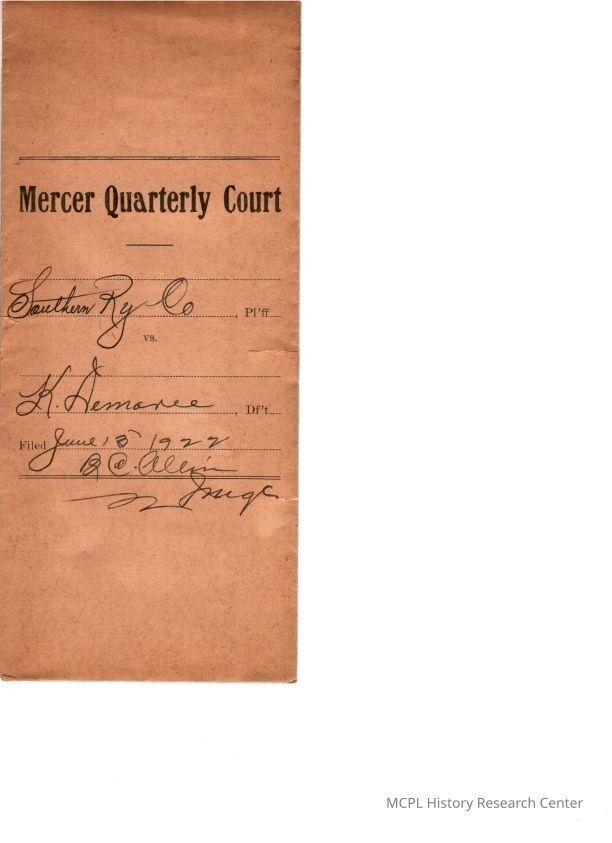 Mercer Quarterly Court
Southern Ry Co , Pl'ff
vs.
K. Demaree , Df't
Filed June 15 1922
Judge
MCPL History Research Center